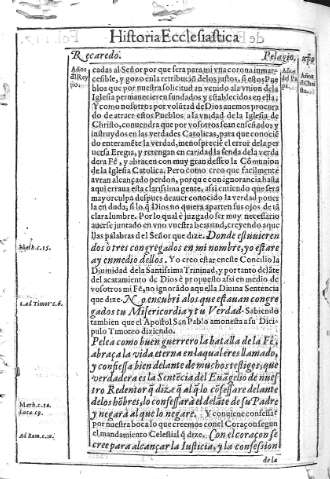 Historia Ecclesiastica
Recaredo. Pelagio,
Años del Rey
cadas al Señor por que sera para mi vna corona inmarcesible, y gozo en la retribuciõ de los justos, si estos Pueblos que por nuestra solicitud an venido a la vniõ de la
Iglesia permanecieren fundados y establecidos en ella,
Y como nosotros por volũtad de Dios auemos procurado de atraer estos Pueblos a la vnidad de la Iglesia de
Christo, conuendra que por vosotros sean enseñados y
instruydos en las verdades Catolicas, para que conociẽdo enteramẽte la verdad, menosprecie el error de la peruersa Eregia, y retengan en caridad la senda de la verdadera Fê, y abracen con muy gran desseo la Cõmunion
de la Iglesia Catolica. Pero como creo que facilmente
avran alcançado perdon, por que con ignorancia hasta
aqui erraua esta clarissima gente, assi entiendo que sera
mayor culpa despues de auer conocido la verdad poner
la en duda, si lo q̃ Dios no quiera aparten sus ojos de tã
clara lumbre. Por lo qual è juzgado ser muy necesario
auerse juntado en vno vuestra beatitud, creyendo aquellas palabras de el Señor que dize. Donde estuuieren
dos ò tres congregados en mi nombre, yo estare
ay en medio dellos. Yo creo estar en este Concilio la
Diuinidad de la Santissima Trinidad, y por tanto delãte
del acatamiento de Dios è propuesto assi en medio de
vosotros mi Fê, no ignorãdo aquella Diuina Sentencia
que dize. No encubri a los que estauan congregados tu Misericordia y tu Verdad. Sabiendo
tambien que el Apostol San Pablo amonesta a su Dicipulo Timoteo diziendo.
Pelea como buen guerrero la batalla de la Fê,
abraça la vida eterna en la qual eres llamado,
y confiessa bien delante de muchos testigos, que
verdadera es la Sentẽcia del Euãgelio de nuestro Redentor q̃ diza q̃ al q̃ lo cõfessare delante
de los hõbres, lo confessarà el delãte de su Padre
y negarà al que lo negare. Y conuiene confessar
por nuestra boca lo que creemos con el Coraçon segun
el mandamiento Celestial q̃ dize. Con el coraçon se
cree para alcançar la Iusticia, y la confession
de la
Math. c. 15.
1. ad Timot. c. 6.
Math. c. 10.
Luc. 19.
Ad Rom. c. 10.